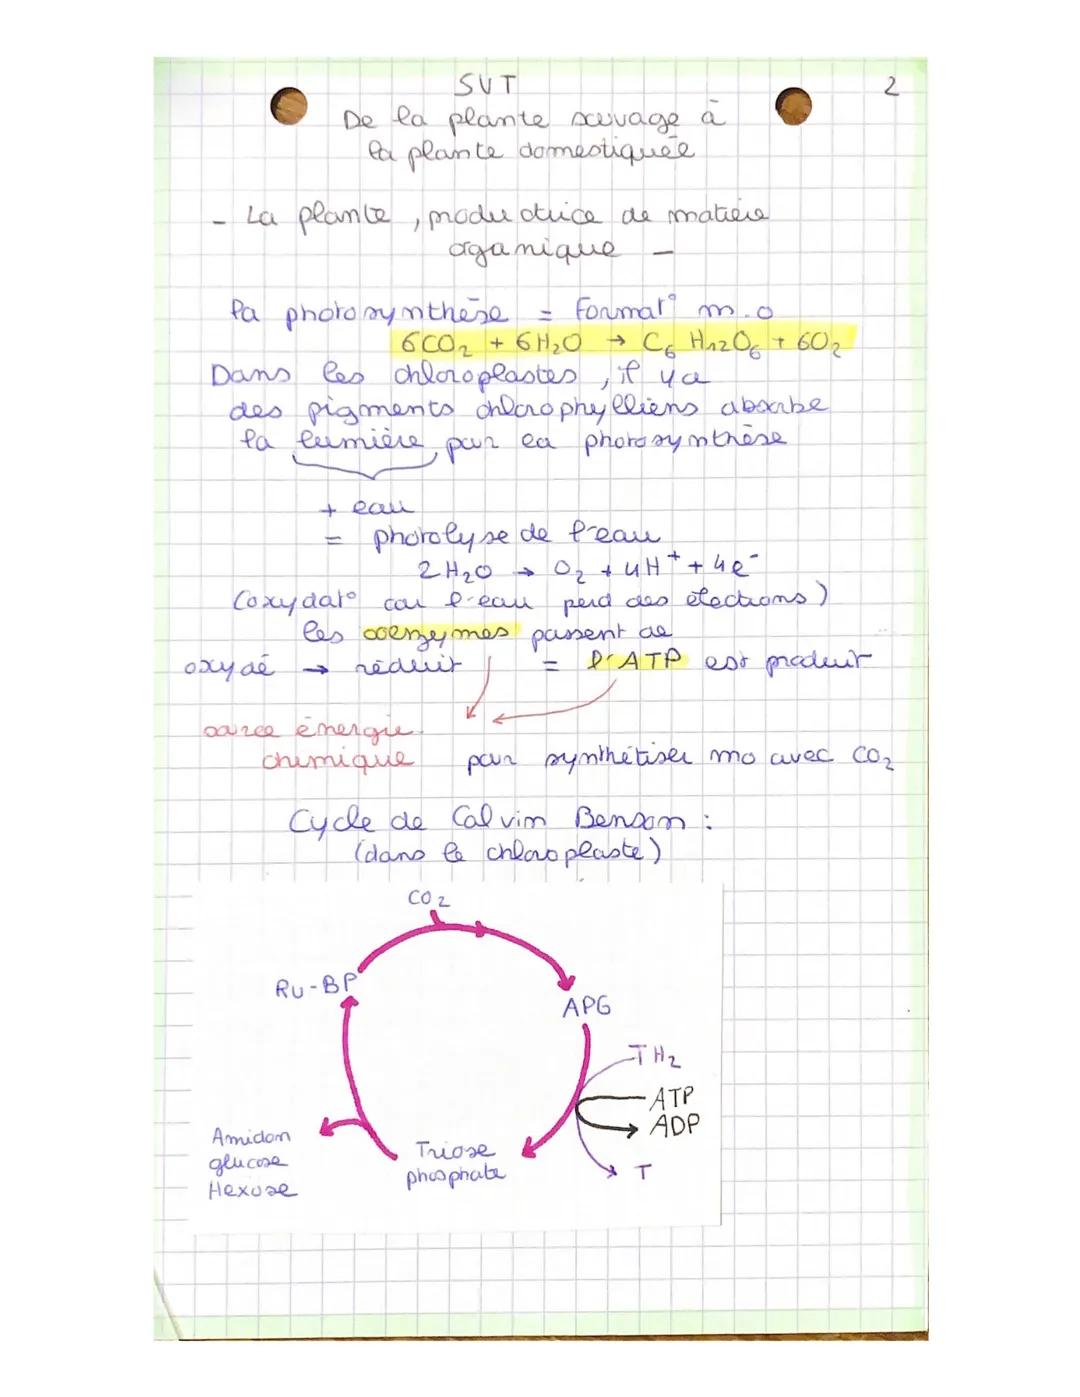 SVT
2
De la plante sauvage à
la plante domestiquée
- La plante, productrice de matière
organique -
la photosynthèse = Format° m.o
6CO₂ + 6H₂O → C₆ H₁₂O₆ + 6O₂
Dans les chloroplastes, il y a
des pigments chlorophylliens absorbe
la lumière pour la photosynthèse
+ eau
= photolyse de l'eau
2H₂O → O₂ + 4H⁺ + 4e⁻
(oxydat° car l'eau perd des électrons)
les coenzymes passent de
oxydé → réduit = l'ATP est produit
source énergie
chimique pour synthétiser mo avec CO₂
Cycle de Calvin Benson :
(dans le chloroplaste)
CO₂
Ru-BP
APG
TH₂
ATP
ADP
T
Triose
phosphate
Amidon
glucose
Hexose